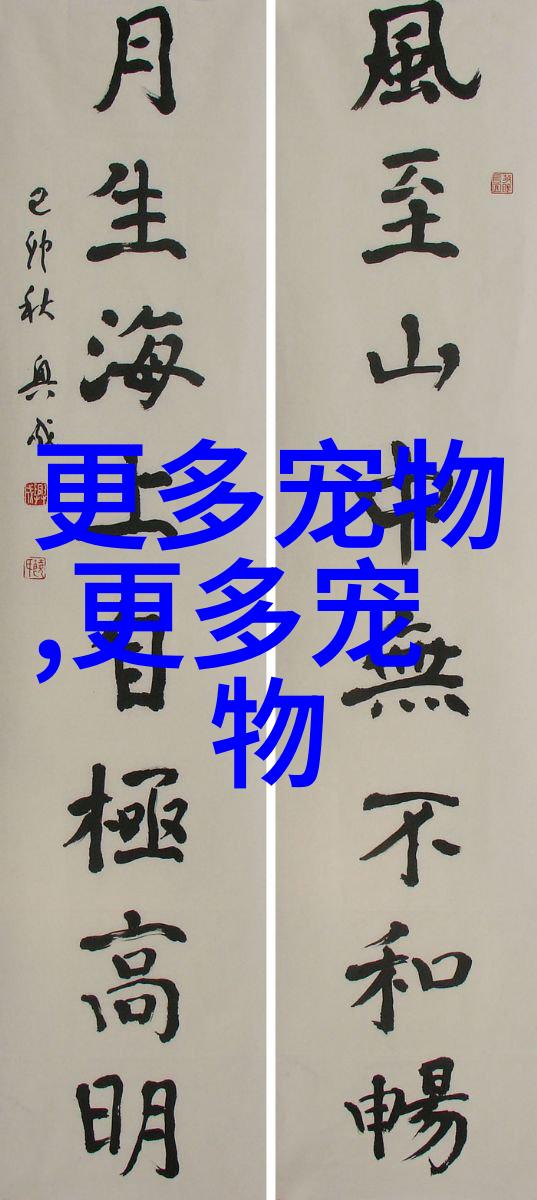 風至山中無不和暢
月生海上自極高明
己卯秋
更多宠物
,更多宠
物